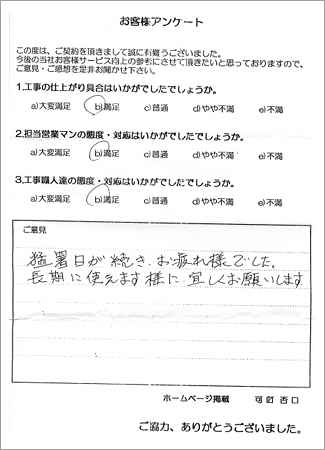 お客様アンケート
この度は、ご契約を頂きまして誠に有難うございました。
今後の当社お客様サービス向上の参考にさせて頂きたいと思っておりますので、
ご意見・ご感想を是非お聞かせ下さい。
1.工事の仕上がり具合はいかがでしたでしょうか。
a)大変満足 b)満足 c)普通 d)やや不満 e)不満
2.担当営業マンの態度・対応はいかがでしたでしょうか。
a)大変満足 b)満足 c)普通 d)やや不満 e)不満
3.工事職人達の態度・対応はいかがでしたでしょうか。
a)大変満足 b)満足 c)普通 d)やや不満 e)不満
ご意見
猛暑日が続き、お疲れ様でした。
長期に使えます様に宜しくお願いします
ホームページ掲載 可□ 否□
ご協力、ありがとうございました。